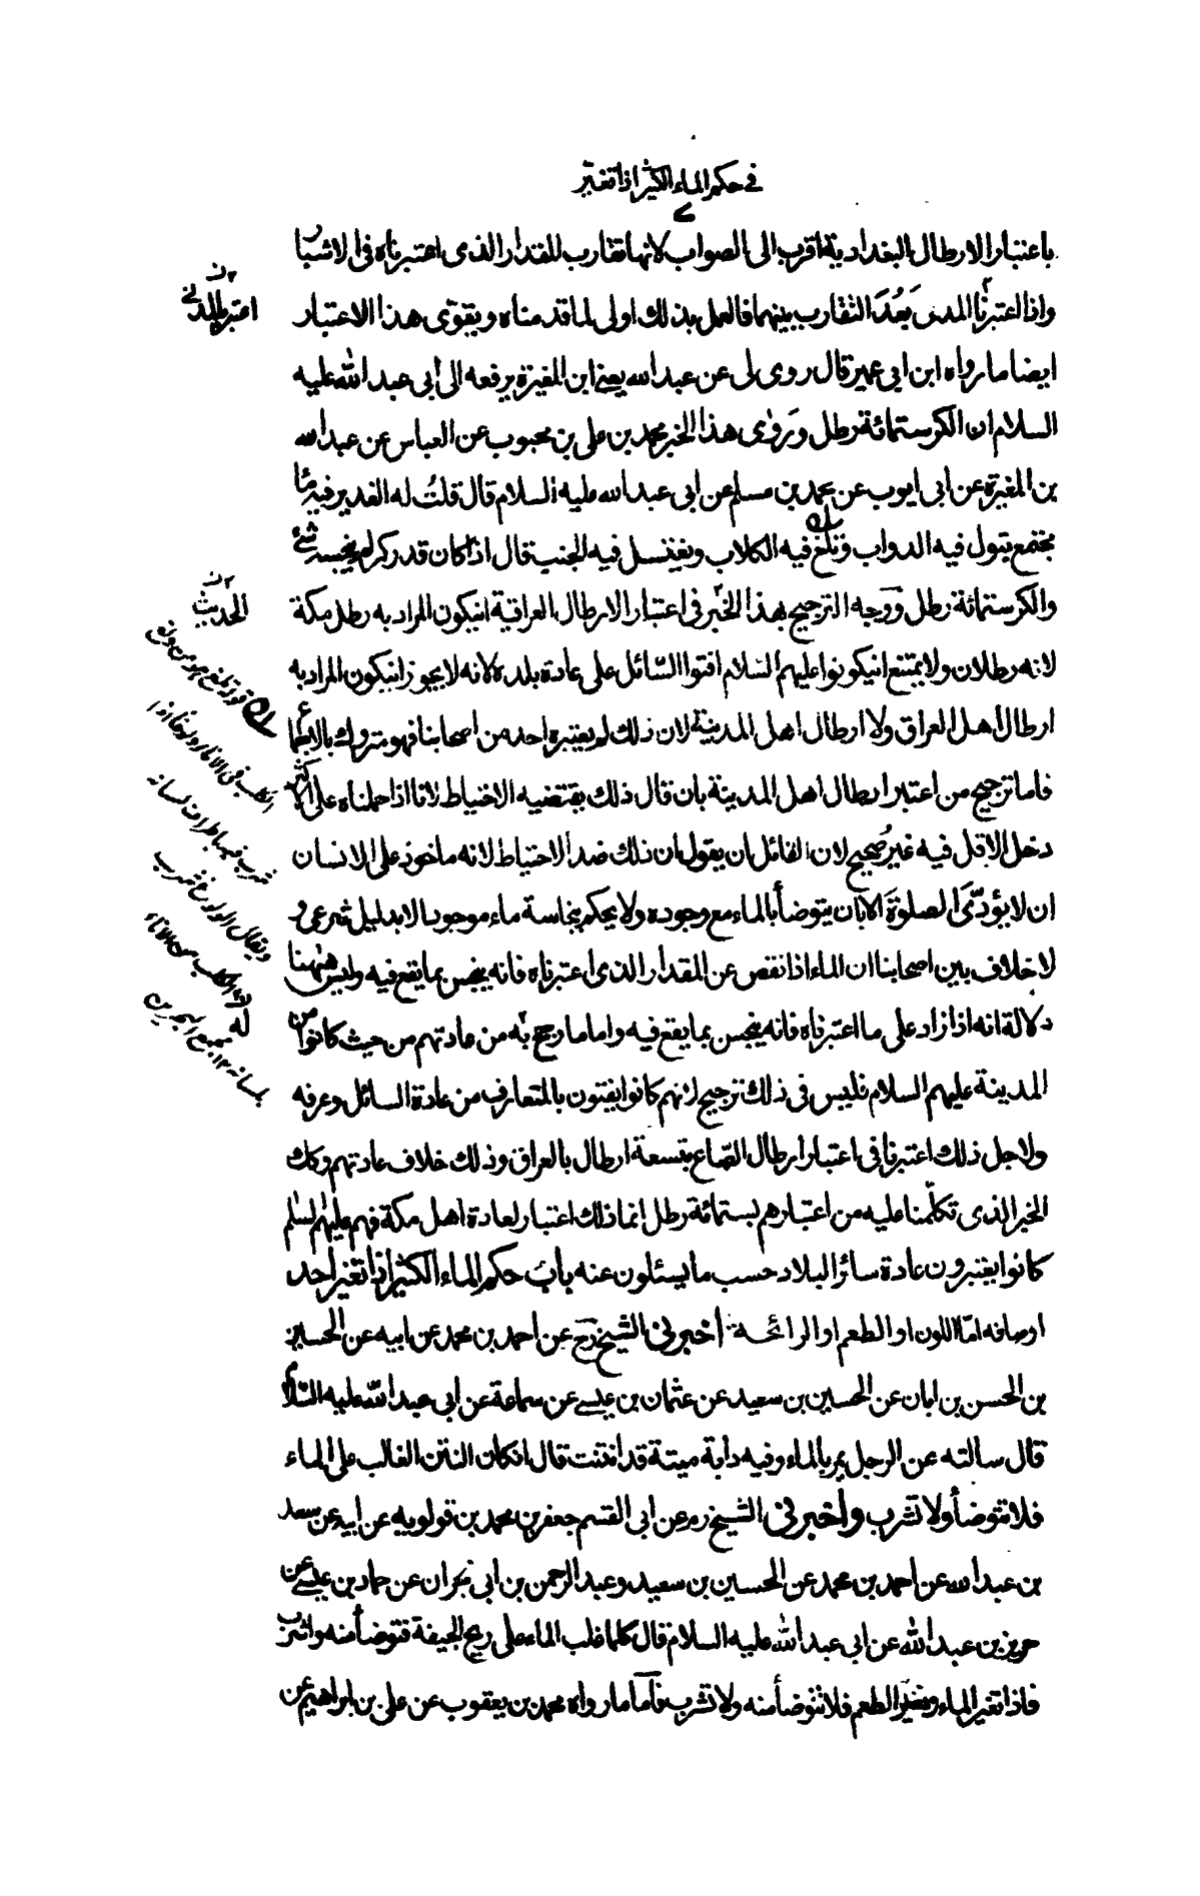 في حكم الماء الكثير اذا تغير
باعتبار الارطال البغدادية اقرب الى الصواب لانها تقارب للمقدار الذى اعتبرناه فى الاشبار
واذا اعتبرنا المدنى بَعُدَ التقارب بينهما فالعمل بذلك اولى لما قدمناه ويقوّى هذا الاعتبار
ايضا ما رواه ابن ابى عمير قال روى لى عن عبد الله يعنى ابن المغيرة يرفعه الى ابى عبد الله عليه
السلام ان الكر ستمائة رطل وَرَوٰى هذا الخبر محمد بن على بن محبوب عن العباس عن عبد الله
بن المغيرة عن ابى ايوب عن محمد بن مسلم عن ابى عبد الله عليه السلام قال قلتُ له الغدير فيه ماء
مجتمع يتبول فيه الدواب وتلغ فيه الكلاب ويغتسل فيه الجنب قال اذا كان قدر كر لم ينجسه شئ
والكر ستمائة رطل ووجه الترجيح بهذا الخبر فى اعتبار الارطال العراقية انيكون المراد به رطل مكة
لانه رطلان ولا يمتنع انيكونوا عليهم السلام افتوا السّائل على عادة بلده لانه لا يجوز انيكون المراد به
ارطال اهل العراق ولا ارطال اهل المدينة لان ذلك لم يعتبره احد من اصحابنا فهو متروك بالاجماع
فاما ترجيح من اعتبر ارطال اهل المدينة بان قال ذلك يقتضيه الاحتياط لانا اذا حملناه على الاكثر
دخل الاقل فيه غيرُ صحيح لان القائل ان يقول ان ذلك ضد الاحتياط لانه ماخوذ على الانسان
ان لا يؤدّىَ الصلوةَ الا بان يتوضأ بالماء مع وجوده ولا يحكم بنجاسة ماء موجود الا بدليل شرعى و
لا خلاف بين اصحابنا ان الماء اذا نقص عن المقدار الذى اعتبرناه فانه ينجس بما يقع فيه وليس هيهنا
دلالة انه اذا زاد على ما اعتبرناه فانه ينجس بما يقع فيه واما ما رجح به من عادتهم من حيث كانوا من
المدينة عليهم السلام فليس فى ذلك ترجيح لانهم كانوا يفتون بالمتعارف من عادة السائل وعرفه
ولاجل ذلك اعتبرنا فى اعتبار ارطال الصّاع بتسعة ارطال بالعراقى وذلك خلاف عادتهم وكك
الخبر الذى تكلّمنا عليه من اعتبارهم بستمائة رطل انما ذلك اعتبار لعادة اهل مكة فهم عليهم السلم
كانوا يعتبرون عادة سائر البلاد حسب ما يسئلون عنه باب حكم الماء الكثير اذا تغير احد
اوصافه امّا اللون او الطعم او الرائحة اخبرنى الشيخ رَح عن احمد بن محمد عن ابيه عن الحسين
بن الحسن بن ابان عن الحسين بن سعيد عن عثمان بن عيسے عن سماعة عن ابى عبد اللّه عليه السّلام
قال سالته عن الرجل يمر بالماء وفيه دابة ميتة قد انتنت قال انكان النتن الغالب على الماء
فلا تتوضأ ولا تشرب واخبرنى الشيخ ره عن ابى القسم جعفر بن محمد بن قولويه عن ابيه عن سعد
بن عبد الله عن احمد بن محمد عن الحسين بن سعيد وعبد الرحمن بن ابى نجران عن حماد بن عيسے عن
حريز بن عبد الله عن ابى عبد الله عليه السلام قال كلما غلب الماء على ريح الجيفة فتوضأ منه واشرب
فاذا تغير الماء وتغير الطعم فلا تتوضأ منه ولا تشرب فاما ما رواه محمد بن يعقوب عن على بن ابراهيم عن
اعتبر بالمدنى
الحديث